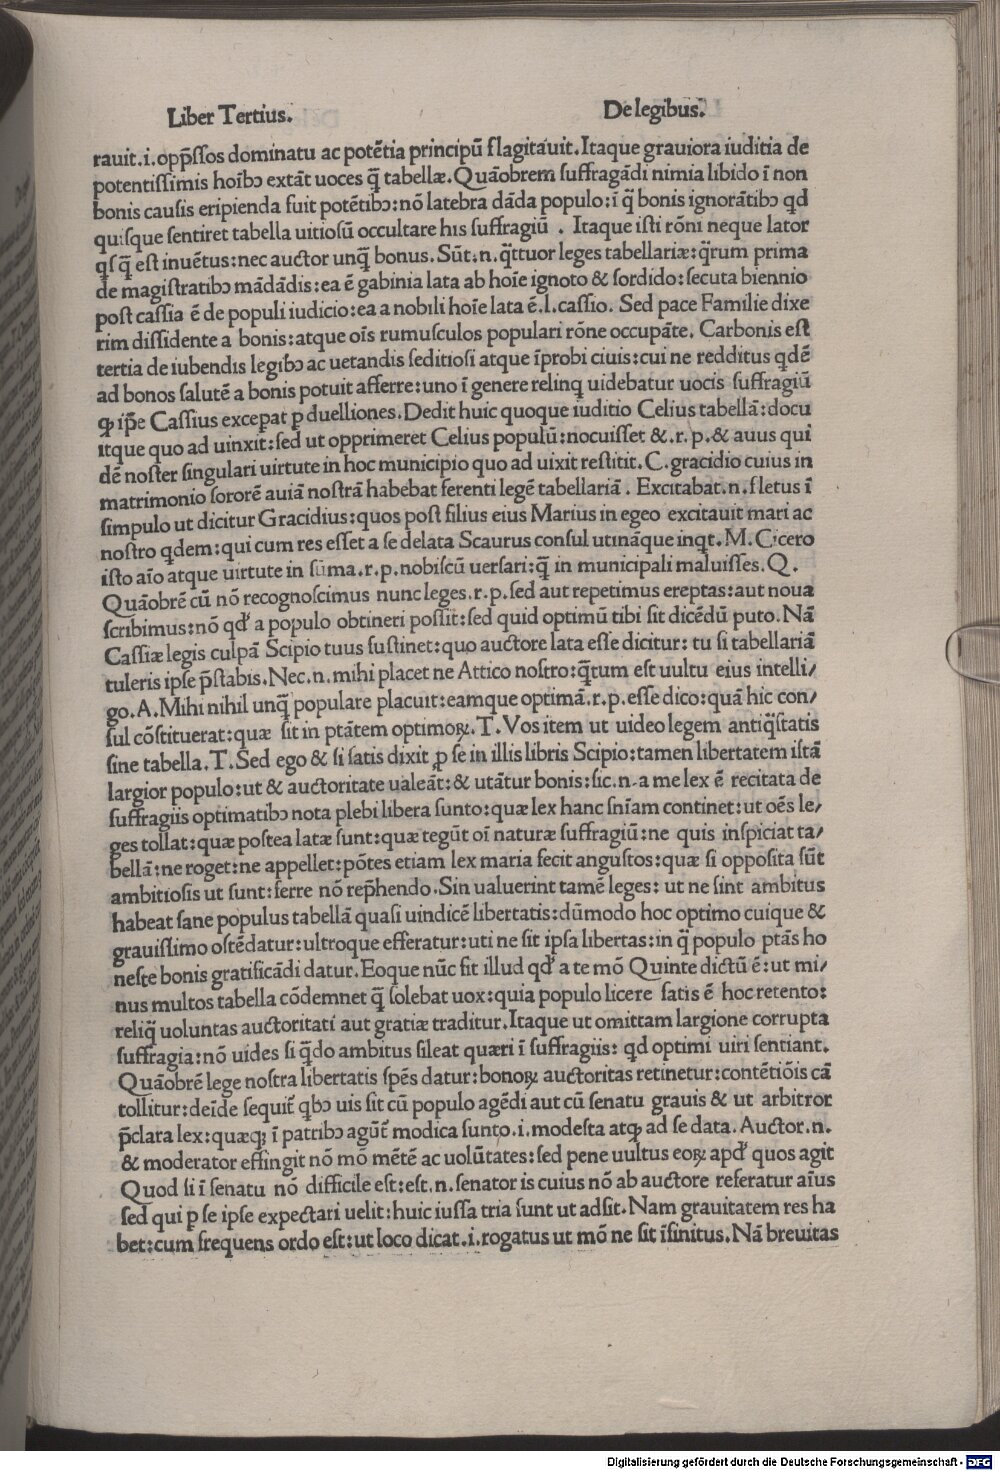 Liber Tertius. De legibus.
rauit.i.opp̄ſſos dominatu ac potētia principū flagitauit.Itaque grauiora iuditia de
potentiſſimis hoībↄ extāt uoces q̄ tabellæ.Quāobrem ſuffragādi nimia libido ī non
bonis cauſis eripienda fuit potētibↄ:nō latebra dāda populo:ī q̄ bonis ignorātibↄ qd
quiſque ſentiret tabella uitioſū occultare his ſuffragiū . Itaque iſti rōni neque lator
qſq̄ eſt inuētus:nec auctor unq̄ bonus.Sūt.n.q̄ttuor leges tabellariæ:q̄rum prima
de magiſtratibↄ mādādis:ea ē gabinia lata ab hoīe ignoto & ſordido:ſecuta biennio
poſt caſſia ē de populi iudicio:ea a nobili hoīe lata ē.l.caſſio. Sed pace Familie dixe
rim diſſidente a bonis:atque oīs rumuſculos populari rōne occupāte. Carbonis eſt
tertia de iubendis legibↄ ac uetandis ſeditioſi atque īprobi ciuis:cui ne redditus qdē
ad bonos ſalutē a bonis potuit afferre:uno ī genere relinq uidebatur uocis ſuffragiū
ꝙ ip̄e Caſſius excepat ꝑ duelliones.Dedit huic quoque iuditio Celius tabellā:docu
itque quo ad uinxit:ſed ut opprimeret Celius populū:nocuiſſet &.r.p.& auus qui
dē noſter ſingulari uirtute in hoc municipio quo ad uixit reſtitit.C.gracidio cuius in
matrimonio ſororē auiā noſtrā habebat ferenti legē tabellariā . Excitabat.n.fletus ī
ſimpulo ut dicitur Gracidius:quos poſt filius eius Marius in egeo excitauit mari ac
noſtro qdem:qui cum res eſſet a ſe delata Scaurus conſul utināque inqt.M.Cicero
iſto aīo atque uirtute in ſūma.r.p.nobiſcū uerſari:q̄ in municipali maluiſſes.Q.
Quāobrē cū nō recognoſcimus nunc leges.r.p.ſed aut repetimus ereptas:aut noua
ſcribimus:nō qđ a populo obtineri poſſit:ſed quid optimū tibi ſit dicēdū puto.Nā
Caſſiæ legis culpā Scipio tuus ſuſtinet:quo auctore lata eſſe dicitur: tu ſi tabellariā
tuleris ipſe p̄ſtabis.Nec.n.mihi placet ne Attico noſtro:q̄tum eſt uultu eius intelli/
go.A.Mihi nihil unq̄ populare placuit:eamque optimā.r.p.eſſe dico:quā hic con/
ſul cōſtituerat:quæ ſit in ptātem optimoꝝ.T.Vos item ut uideo legem antiq̄ſtatis
ſine tabella.T.Sed ego & ſi ſatis dixit ꝓ ſe in illis libris Scipio:tamen libertatem iſtā
largior populo:ut & auctoritate ualeāt:& utātur bonis:ſic.n.a me lex ē recitata de
ſuffragiis optimatibↄ nota plebi libera ſunto:quæ lex hanc ſnīam continet:ut oēs le/
ges tollat:quæ poſtea latæ ſunt:quæ tegūt oī naturæ ſuffragiū:ne quis inſpiciat ta/
bellā:ne roget:ne appellet:pōtes etiam lex maria fecit anguſtos:quæ ſi oppoſita ſūt
ambitioſis ut ſunt:ferre nō rep̄hendo.Sin ualuerint tamē leges: ut ne ſint ambitus
habeat ſane populus tabellā quaſi uindicē libertatis:dūmodo hoc optimo cuique &
grauiſſimo oſtēdatur:ultroque efferatur:uti ne ſit ipſa libertas:in q̄ populo ptās ho
neſte bonis gratificādi datur.Eoque nūc fit illud qđ a te mō Quinte dictū ē:ut mi/
nus multos tabella cōdemnet q̄ ſolebat uox:quia populo licere ſatis ē hoc retento:
reliq̄ uoluntas auctoritati aut gratiæ traditur.Itaque ut omittam largione corrupta
ſuffragia:nō uides ſi q̄do ambitus ſileat quæri ī ſuffragiis: qd optimi uiri ſentiant.
Quāobrē lege noſtra libertatis ſpēs datur:bonoꝝ auctoritas retinetur:contētiōis cā
tollitur:deīde ſequit̄ qbↄ uis ſit cū populo agēdi aut cū ſenatu grauis & ut arbitror
p̄clara lex:quæq; ī patribↄ agūt̄ modica ſunto.i.modeſta atꝙ ad ſe data.Auctor.n.
& moderator effingit nō mō mētē ac uolūtates:ſed pene uultus eoꝝ apđ quos agit
Quod ſi ī ſenatu nō difficile eſt:eſt.n.ſenator is cuius nō ab auctore referatur aīus
ſed qui ꝑ ſe ipſe expectari uelit:huic iuſſa tria ſunt ut adſit.Nam grauitatem res ha
bet:cum frequens ordo eſt:ut loco dicat.i.rogatus ut mō ne ſit īfinitus.Nā breuitas
Digitalisierung gefördert durch die Deutsche Forschungsgemeinschaft - DFG